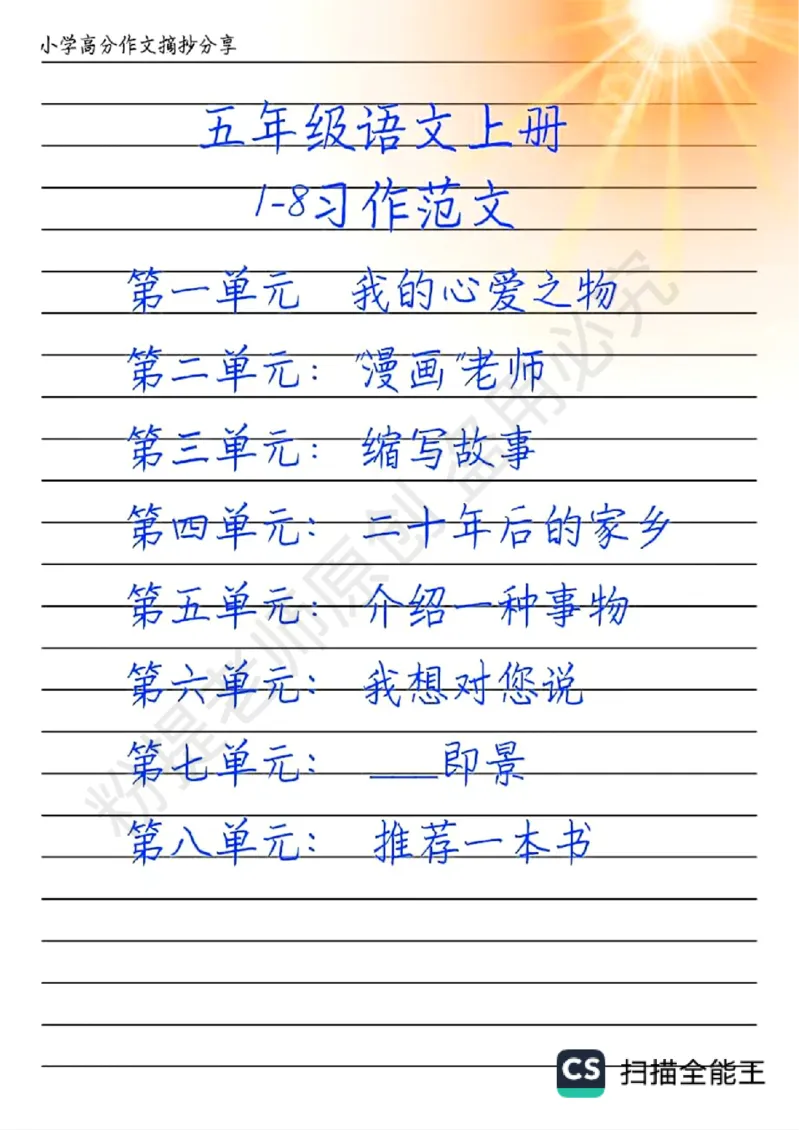 小学高分作文摘抄分享
五年级语文上册
1-8习作范文
第一单元 我的心爱之物
第二单元：“漫画”老师
第三单元：缩写故事
第四单元：二十年后的家乡
第五单元：介绍一种事物
第六单元：我想对您说
第七单元：____即景
第八单元：推荐一本书
粉提老师原创 盗用必究
CS 扫描全能王